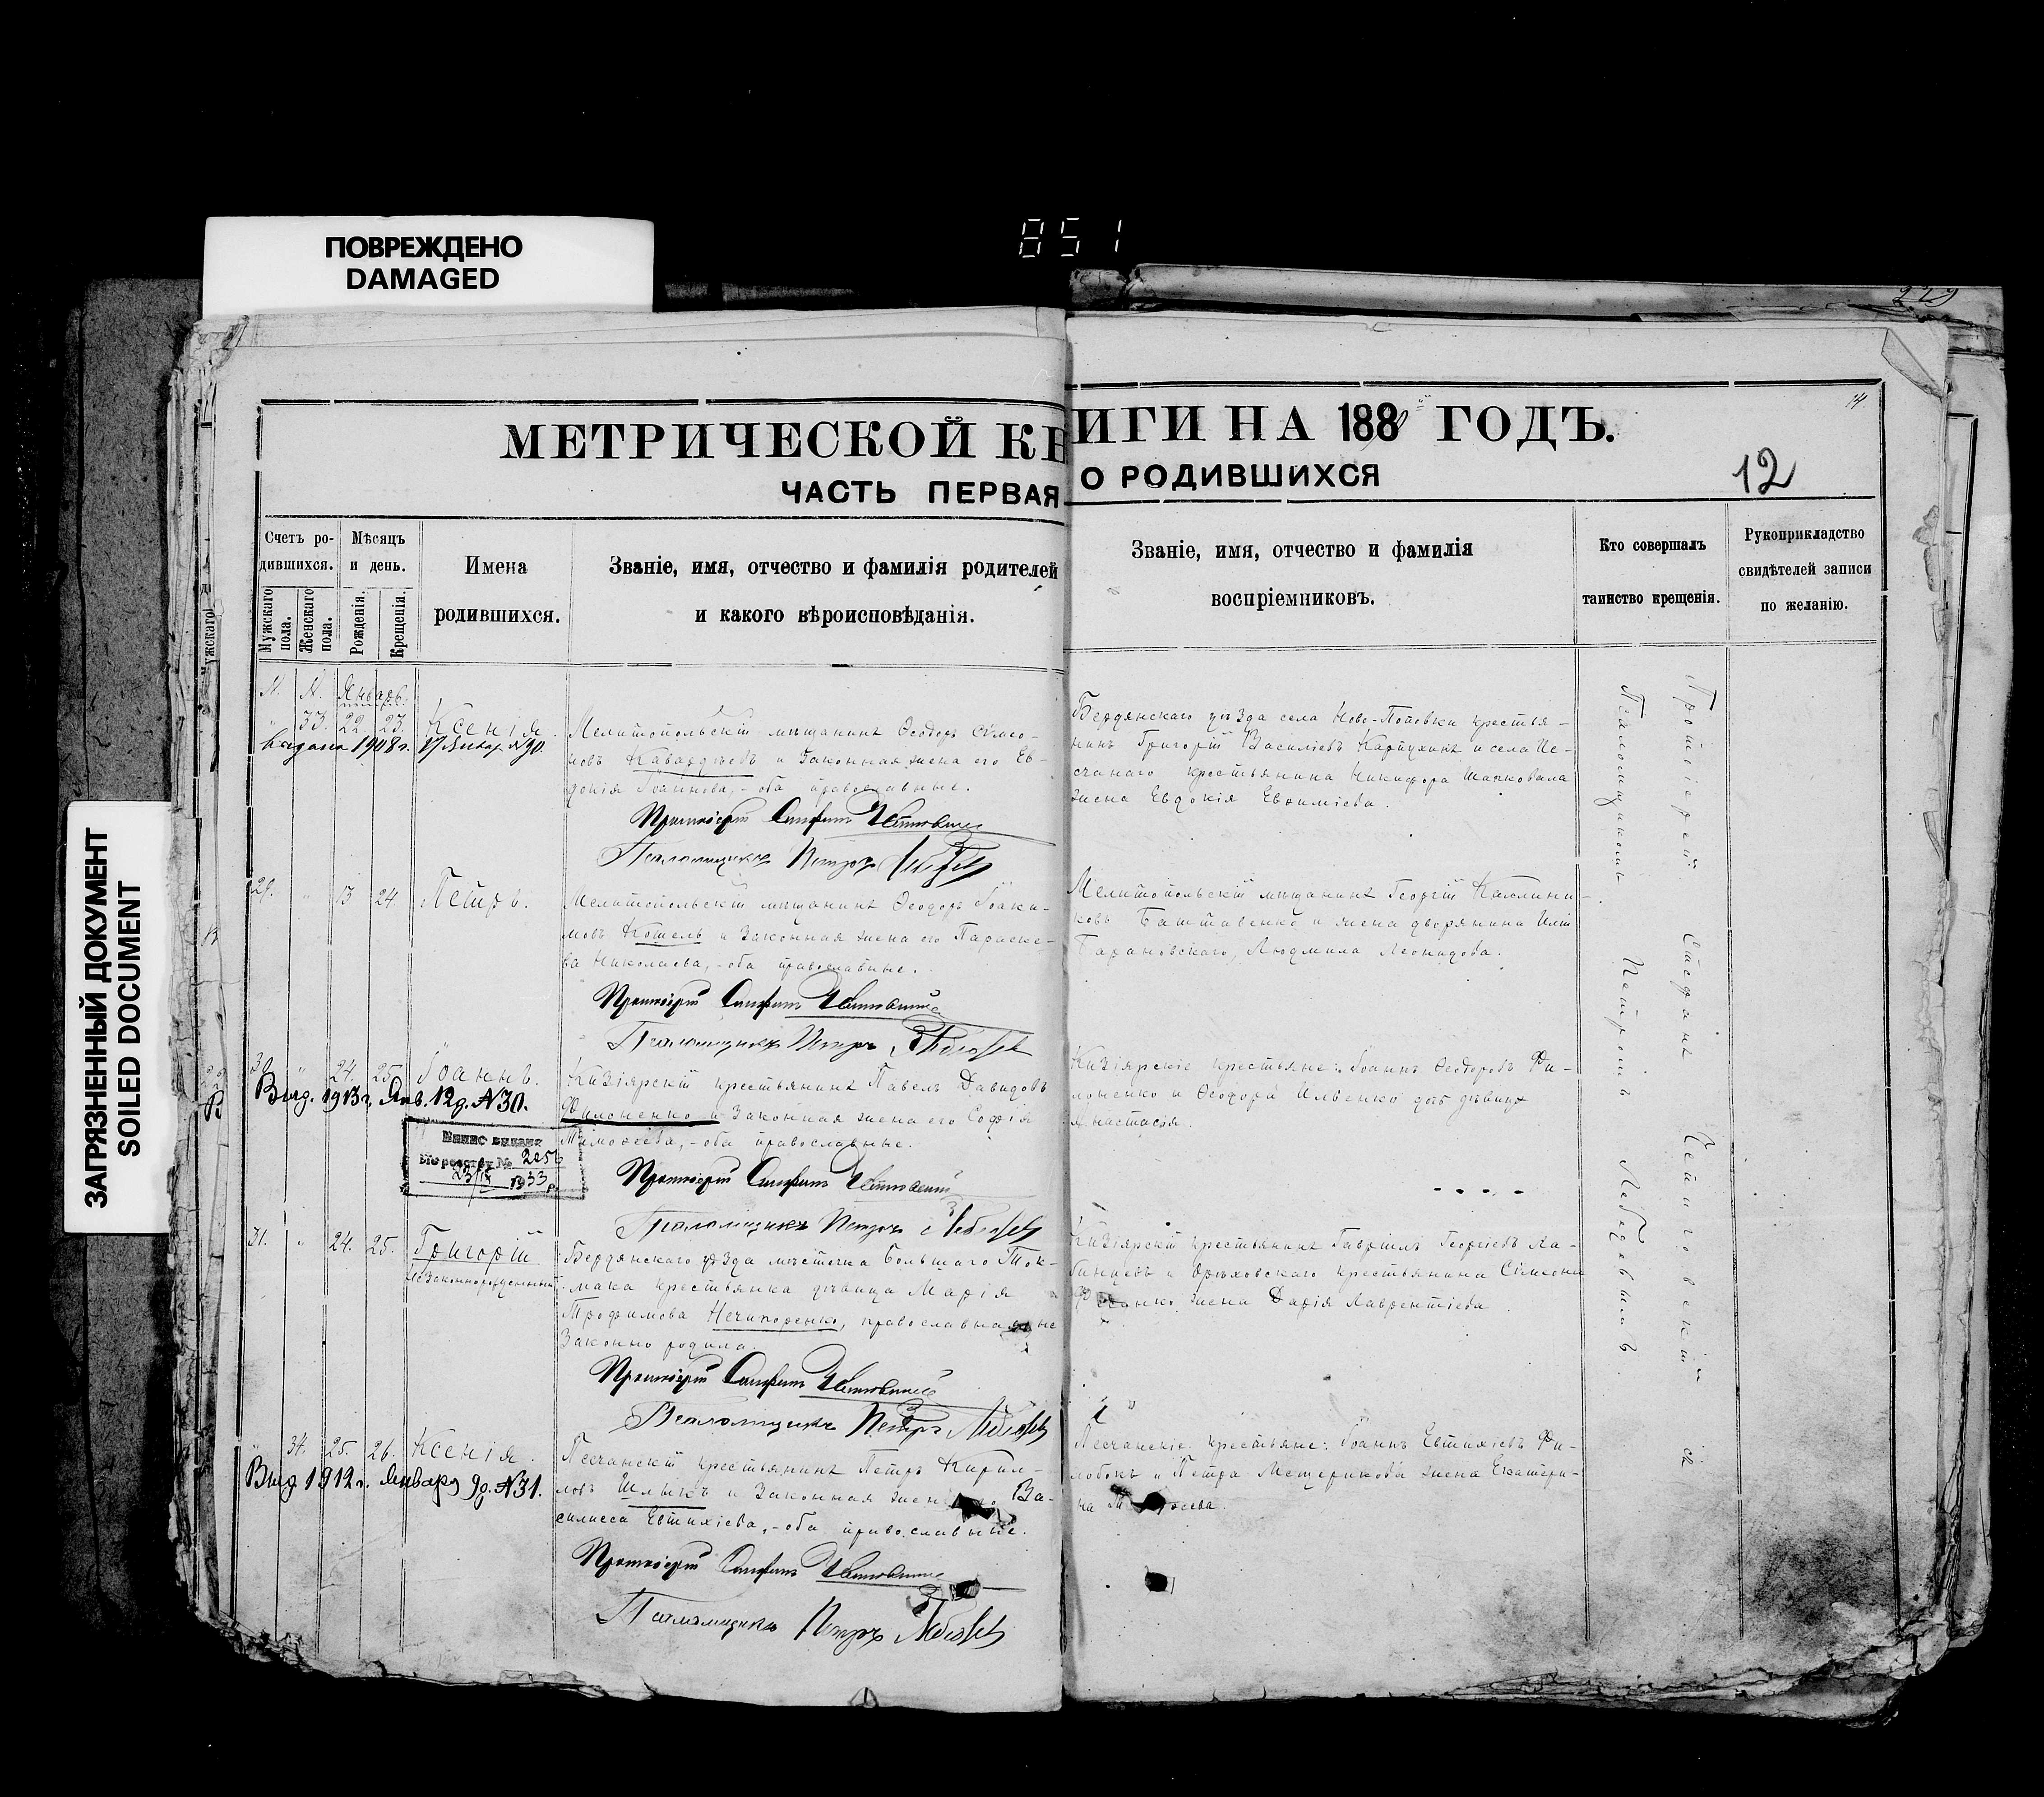 ПОВРЕЖДЕНО
DAMAGED
851
ЗАГРЯЗНЕННЫЙ ДОКУМЕНТ
SOILED DOCUMENT
229
14.
МЕТРИЧЕСКОЙ КНИГИ НА 188 ГОДЪ.
ЧАСТЬ ПЕРВАЯ О РОДИВШИХСЯ
12
Счетъ ро-
дившихся.
Мужскаго пола.
Женскаго пола.
Мѣсяцъ
и день.
Рожденія.
Крещенія.
Имена
родившихся.
Званіе, имя, отчество и фамилія родителей
и какого вѣроисповѣданія.
Званіе, имя, отчество и фамилія
воспріемниковъ.
Кто совершалъ
таинство крещенія.
Рукоприкладство
свидѣтелей записи
по желанію.
М. Январь.
" 33. 22. 23. Ксенія.
выдана 1908 г. 17 Январ. №90.
Мелитопольскій мѣщанинъ Ѳеодоръ Сѵмео-
новъ и законная жена его Ев-
докія Іоаннова, - оба православные.
Протоіерей Стефанъ
Псаломщикъ Петръ Лебедевъ
Бердянскаго уѣзда села Ново-Поповки крестья-
нинъ Григорій Василіевъ Карпухинъ и села Пе-
счанаго крестьянина Никифора Шаповала
жена Евдокія Евѳиміева.
29. " 13 24. Петръ.
Мелитопольскій мѣщанинъ Ѳеодоръ Іоаки-
мовъ Кошель и законная жена его Параске-
ва Николаева, - оба православные.
Протоіерей Стефанъ
Псаломщикъ Петръ Лебедевъ
Мелитопольскій мѣщанинъ Георгій Каллини-
ковъ Баштавенко и жена дворянина Иліи
Барановскаго, Людмила Леонидова.
30. " 24. 25. Іоаннъ.
Выд. 1913 г. Янв. 12 д. №30.
Випис видана
По реєстру № 2056
23/IV 1933 р.
Кизіярскій крестьянинъ Павелъ Давидовъ
Филоненко и законная жена его Софія
Тимоѳеева, - оба православные.
Протоіерей Стефанъ
Псаломщикъ Петръ Лебедевъ
Кизіярскіе крестьяне: Іоаннъ Ѳеодоровъ Фи-
лоненко и Ѳеодора Ильенко дѣвица
Анастасія.
31. " 24. 25. Григорій
незаконнорожденный.
Бердянскаго уѣзда мѣстечка Большаго Ток-
мака крестьянка дѣвица Марія
Трофимова Нечипоренко, православная не
законно родила.
Протоіерей Стефанъ
Псаломщикъ Петръ Лебедевъ
Кизіярскій крестьянинъ Гавріилъ Георгіевъ Ка-
бинцевъ и Орѣховскаго крестьянина Сѵмеона
жена Дарія Лаврентіева.
" 34. 25. 26. Ксенія.
Выд. 1912 г. Январь 9 д. №31.
Песчанскій крестьянинъ Петръ Кирил-
ловъ Шлыкъ и законная жена его Ва-
силисса Евтихіева, - оба православные.
Протоіерей Стефанъ
Псаломщикъ Петръ Лебедевъ
Песчанскіе крестьяне: Іоаннъ Евтихіевъ Фи-
лобокъ и Петра Мещерякова жена Екатери-
на
Протоіерей Стефанъ
Псаломщикомъ Петромъ Лебедевымъ